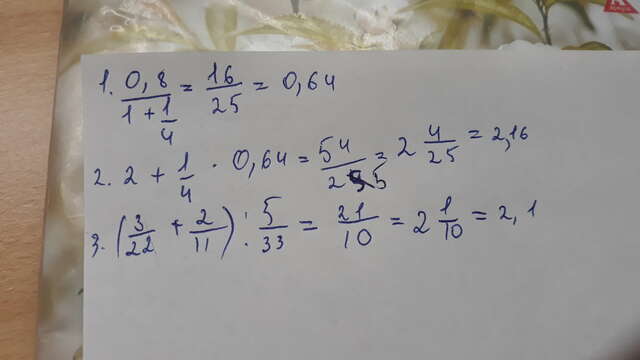 1. 0,8 / (1 + 1/4) = 16/25 = 0,64
2. 2 + 1/4 · 0,64 = 54/25 = 2 4/25 = 2,16
3. (3/22 + 2/11) : 5/33 = 21/10 = 2 1/10 = 2,1